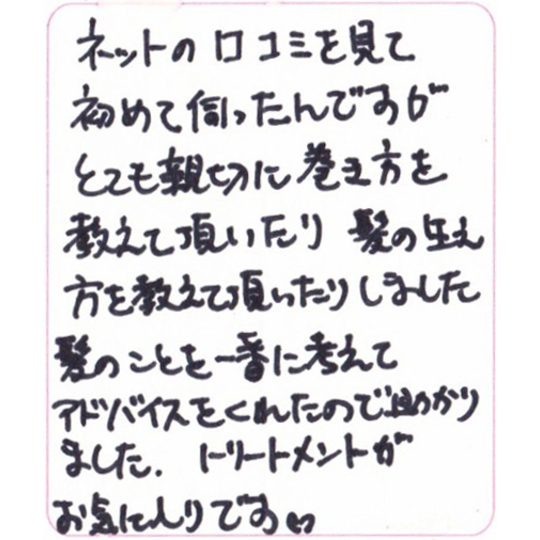 ネットの口コミを見て
初めて伺ったんですが
とても親切に巻き方を
教えて頂いたり 髪の生え
方を教えて頂いたりしました
髪のことを一番に考えて
アドバイスをくれたので助かり
ました. トリートメントが
お気に入りです